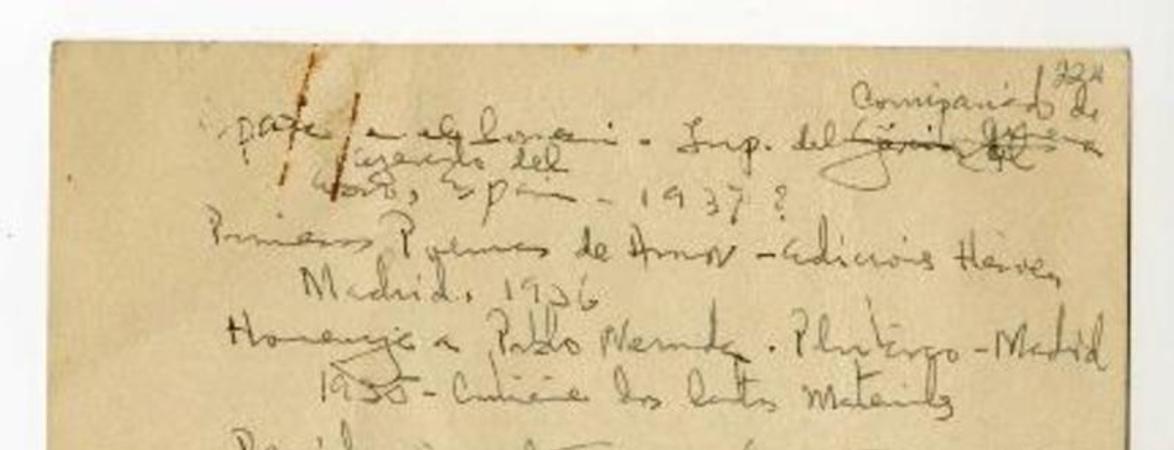 224
Comisariado de
España en el corazón - Imp. del
ejército del
este, España - 1937?
Primeros Poemas de Amor - Ediciones Héroe,
Madrid. 1936
Homenaje a Pablo Neruda. Plutarco - Madrid
1935 - Contiene los Cantos Materiales